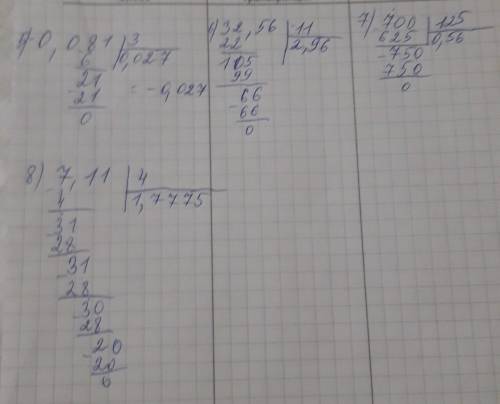 5) -0,081 | 3
6 | 0,027
-21
21 = -0,027
0
6) 32,56 | 11
22 | 2,96
105
99
66
-66
0
7) 700 | 125
625 | 0,56
-750
750
0
8) 7,11 | 4
4 | 1,7775
31
28
-31
28
-30
28
-20
20
0